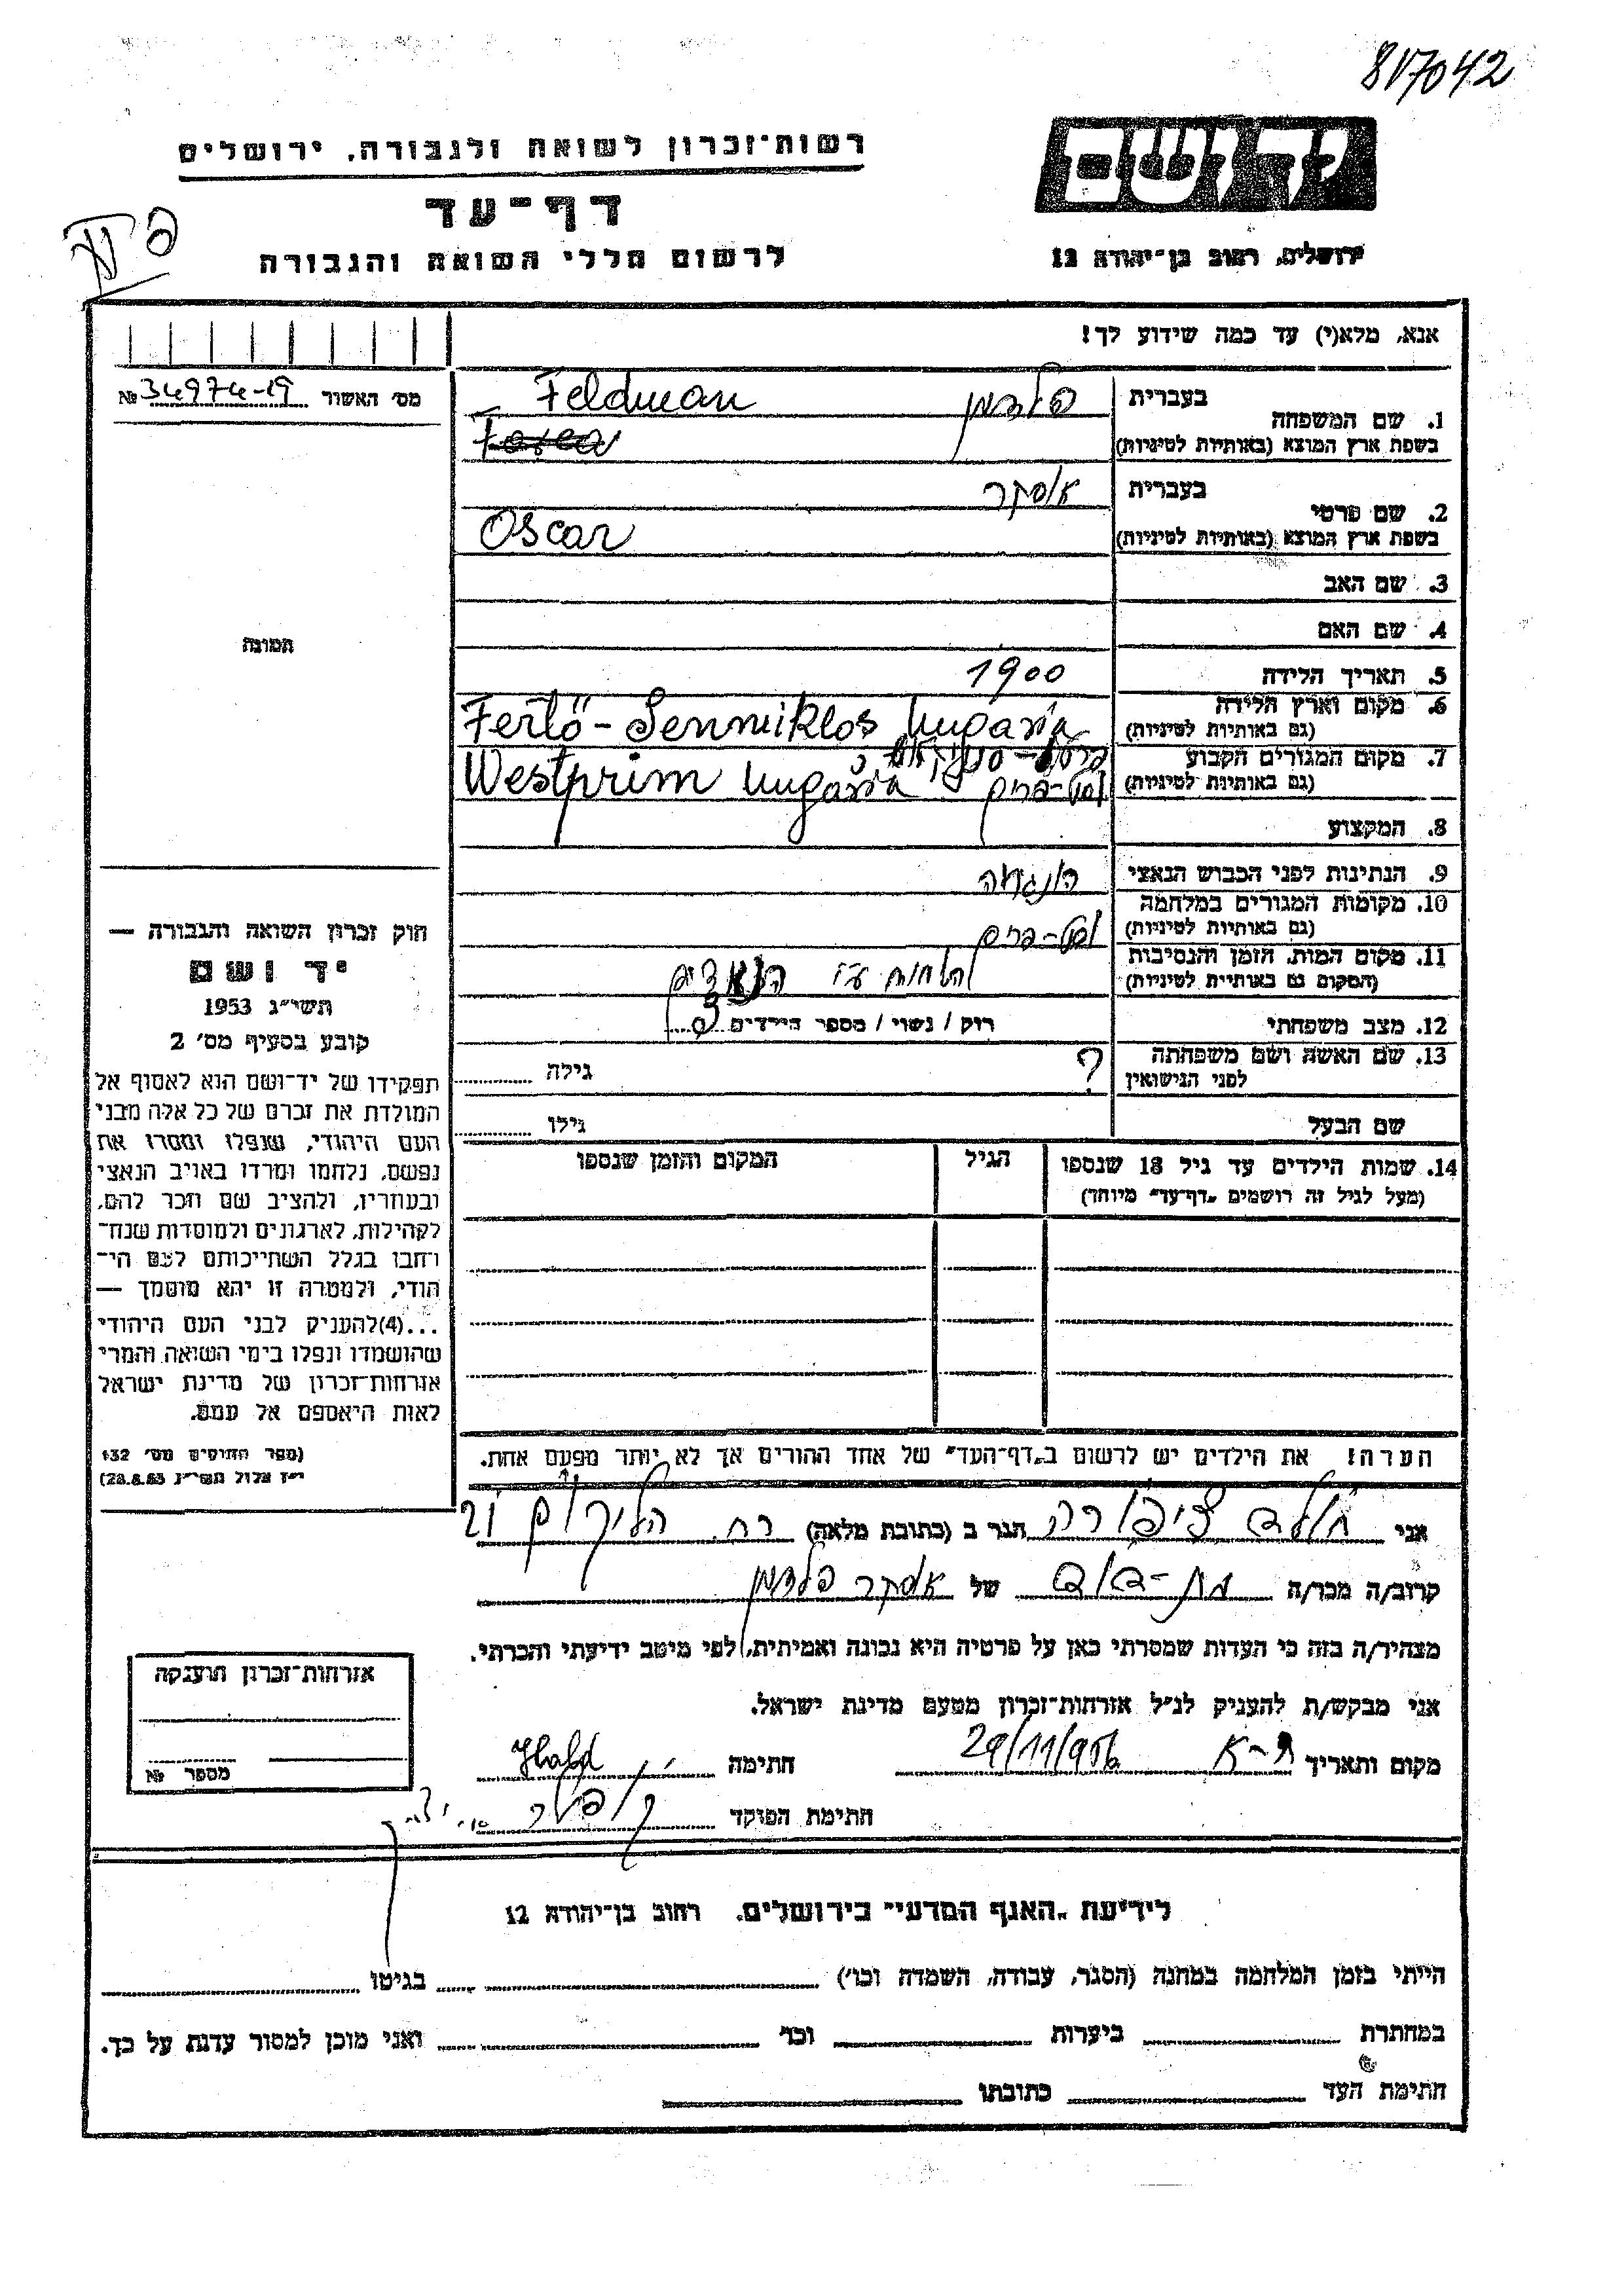 817042
יד ושם
רשות־זכרון לשואה ולגבורה, ירושלים
דף־עד
לרשום חללי השואה והגבורה
ירושלים, רחוב בן־יהודה 12
אנא, מלא(י) עד כמה שידוע לך!
מס׳ האשור № 34974-19
תמונה
בעברית פלדמן Feldman
1. שם המשפחה
בשפת ארץ המוצא (באותיות לטיניות)
בעברית אוסקר
2. שם פרטי
בשפת ארץ המוצא (באותיות לטיניות) Oscar
3. שם האב
4. שם האם
5. תאריך הלידה 1900
6. מקום וארץ הלידה Fertö-Senmiklos Hungaria
(גם באותיות לטיניות)
7. מקום המגורים הקבוע Westprim Hungaria
(גם באותיות לטיניות) וסט-פרים
8. המקצוע
9. הנתינות לפני הכבוש הנאצי הונגריה
10. מקומות המגורים במלחמה
(גם באותיות לטיניות) וסט-פרים
11. מקום המות, הזמן והנסיבות
(המקום גם באותיות לטיניות) ע״י הנאצים
12. מצב משפחתי רווק / נשוי / מספר הילדים
13. שם האשה ושם משפחתה ? גילה
לפני הנישואין
שם הבעל גילו
14. שמות הילדים עד גיל 18 שנספו הגיל המקום והזמן שנספו
(מעל לגיל זה רושמים „דף־עד״ מיוחד)
הערה! את הילדים יש לרשום ב„דף־העד״ של אחד ההורים אך לא יותר מפעם אחת.
חוק זכרון השואה והגבורה —
יד ושם
תשי״ג 1953
קובע בסעיף מס׳ 2
תפקידו של יד־ושם הוא לאסוף אל
המולדת את זכרם של כל אלה מבני
העם היהודי, שנפלו ומסרו את
נפשם, נלחמו ומרדו באויב הנאצי
ובעוזריו, ולהציב שם וזכר להם,
לקהילות, לארגונים ולמוסדות שנח־
רחבו בגלל השתייכותם לעם הי־
הודי, ולמטרה זו יהא מוסמך —
...(4)להעניק לבני העם היהודי
שהושמדו ונפלו בימי השואה והמרי
אזרחות־זכרון של מדינת ישראל
לאות היאספם אל עמם.
(ספר החוקים מס׳ 132
י״ז אלול תשי״ג 28.8.53)
אני ציפורה הגר ב (כתובת מלאה) רח.
קרוב/ה מכר/ה בת-דוד של אוסקר פלדמן
מצהיר/ה בזה כי העדות שמסרתי כאן על פרטיה היא נכונה ואמיתית, לפי מיטב ידיעתי והכרתי.
אני מבקש/ת להעניק לנ״ל אזרחות־זכרון מטעם מדינת ישראל.
מקום ותאריך ת-א 29/11/956 חתימה
חתימת הפוקד
אזרחות־זכרון הוענקה
מספר №
לידיעת „האגף המדעי״ בירושלים, רחוב בן־יהודה 12
הייתי בזמן המלחמה במחנה (הסגר, עבודה, השמדה וכו׳) בגיטו
במחתרת ביערות וכו׳ ואני מוכן למסור עדות על כך.
חתימת העד כתובתו